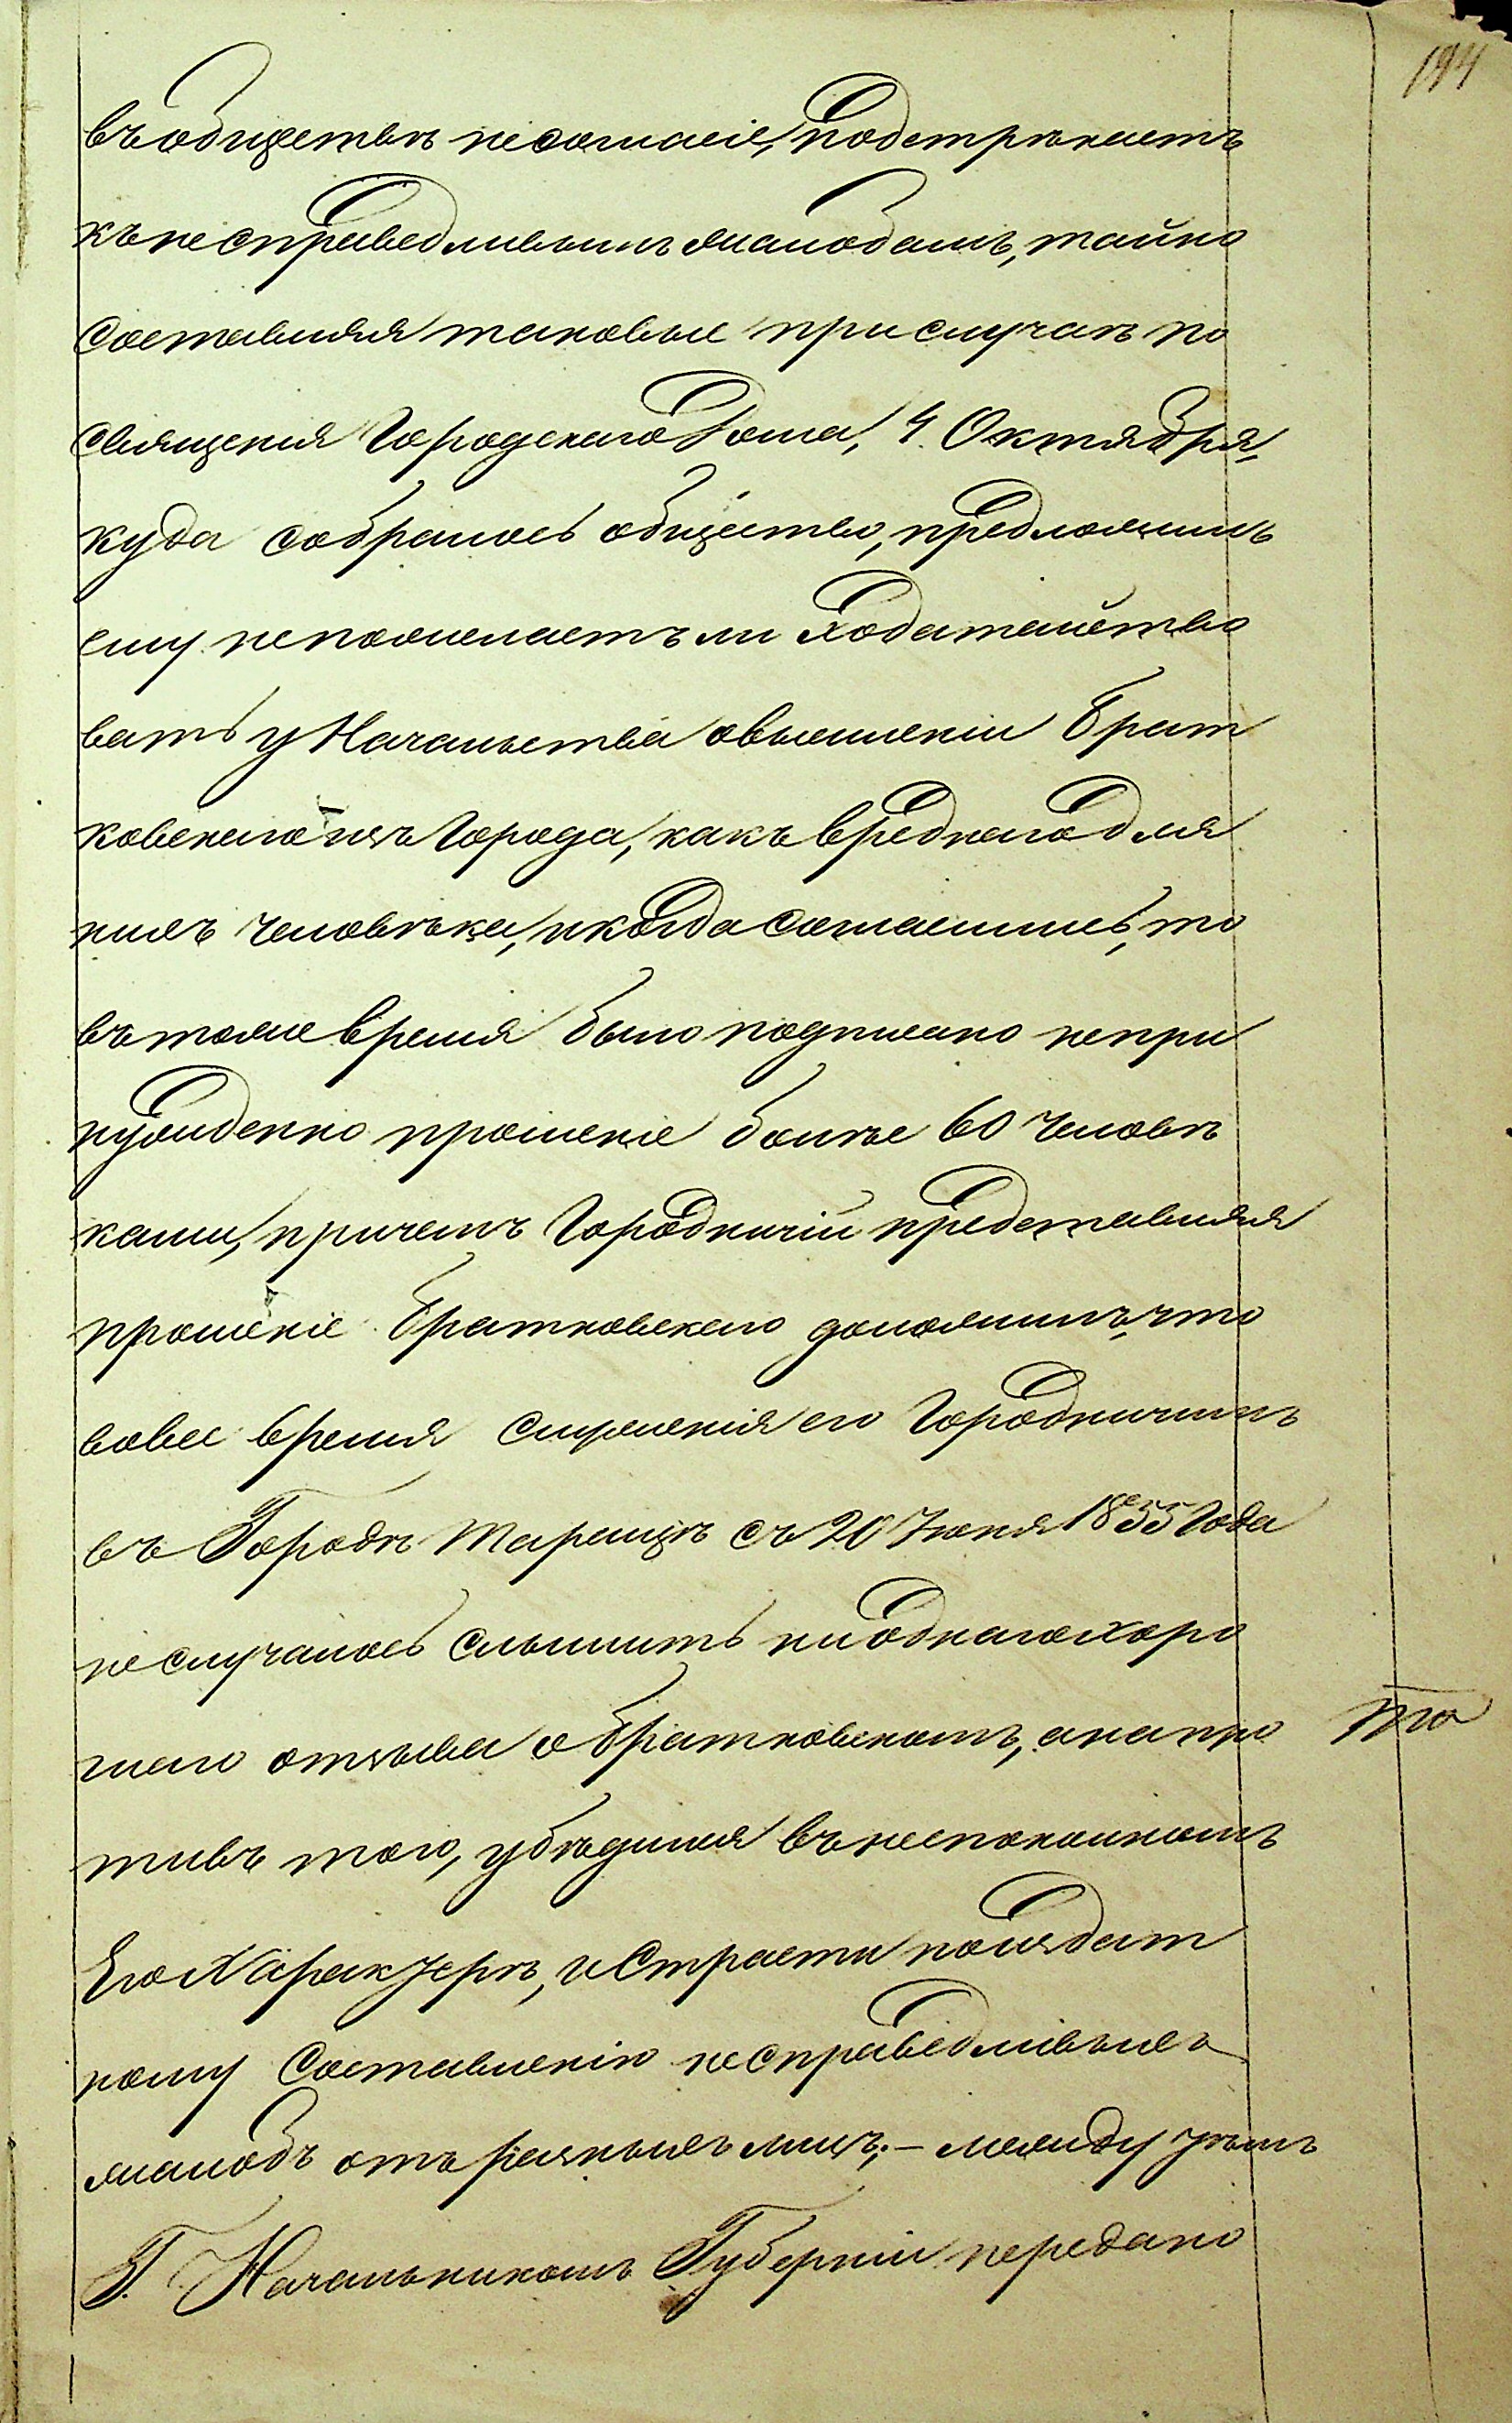 194
въ обществѣ несогласіе, подстрѣкаетъ
къ несправедливымъ жалобамъ, тайно
составляя таковые при случаѣ по
священія Городскаго Дома, 4. Октября,
куда собралось общество, предложилъ
ему непожелаетъ ли ходатайство
вать у Начальства овысылкѣ Брат
ковскаго изъ Города, какъ вреднаго для
нихъ человѣка, и когда согласились, то
въ тоже время было подписано непри
нужденно прошеніе болѣе 60 человѣ
ками, причемъ Городничій представляя
прошеніе Братковскаго доложилъ, что
вовсе время служенія его Городничимъ
въ Городѣ Таращѣ съ 20 Іюня 1855 Года
неслучалось слышать ниоднаго хоро
шаго отзыва о Братковскомъ, а напро
тивъ того, убѣдился въ неспокойномъ
Его Характерѣ, и Страсти пользоват
ному Составленію несправедливыхъ
жалобъ отъ разныхъ лицъ; – между тѣмъ
Г. Начальникомъ Губерніи передано